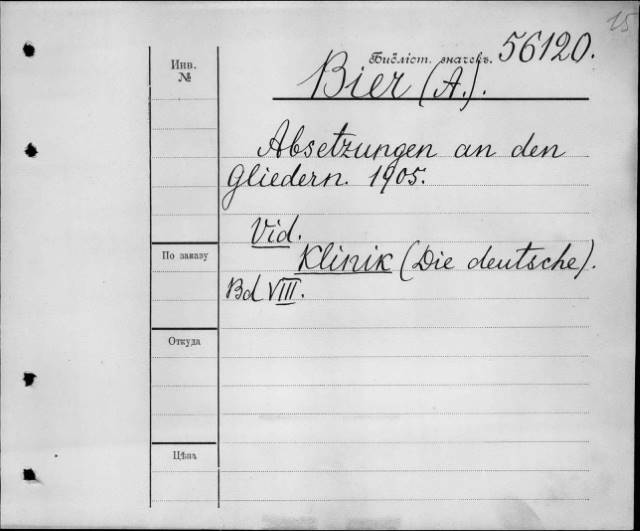 15
Библіот. значекъ. 56120.
Инв.
№
Bier (A.).
Absetzungen an den
Gliedern. 1905.
Vid.
Klinik (Die deutsche).
По заказу
Bd VIII.
Откуда
Цѣна